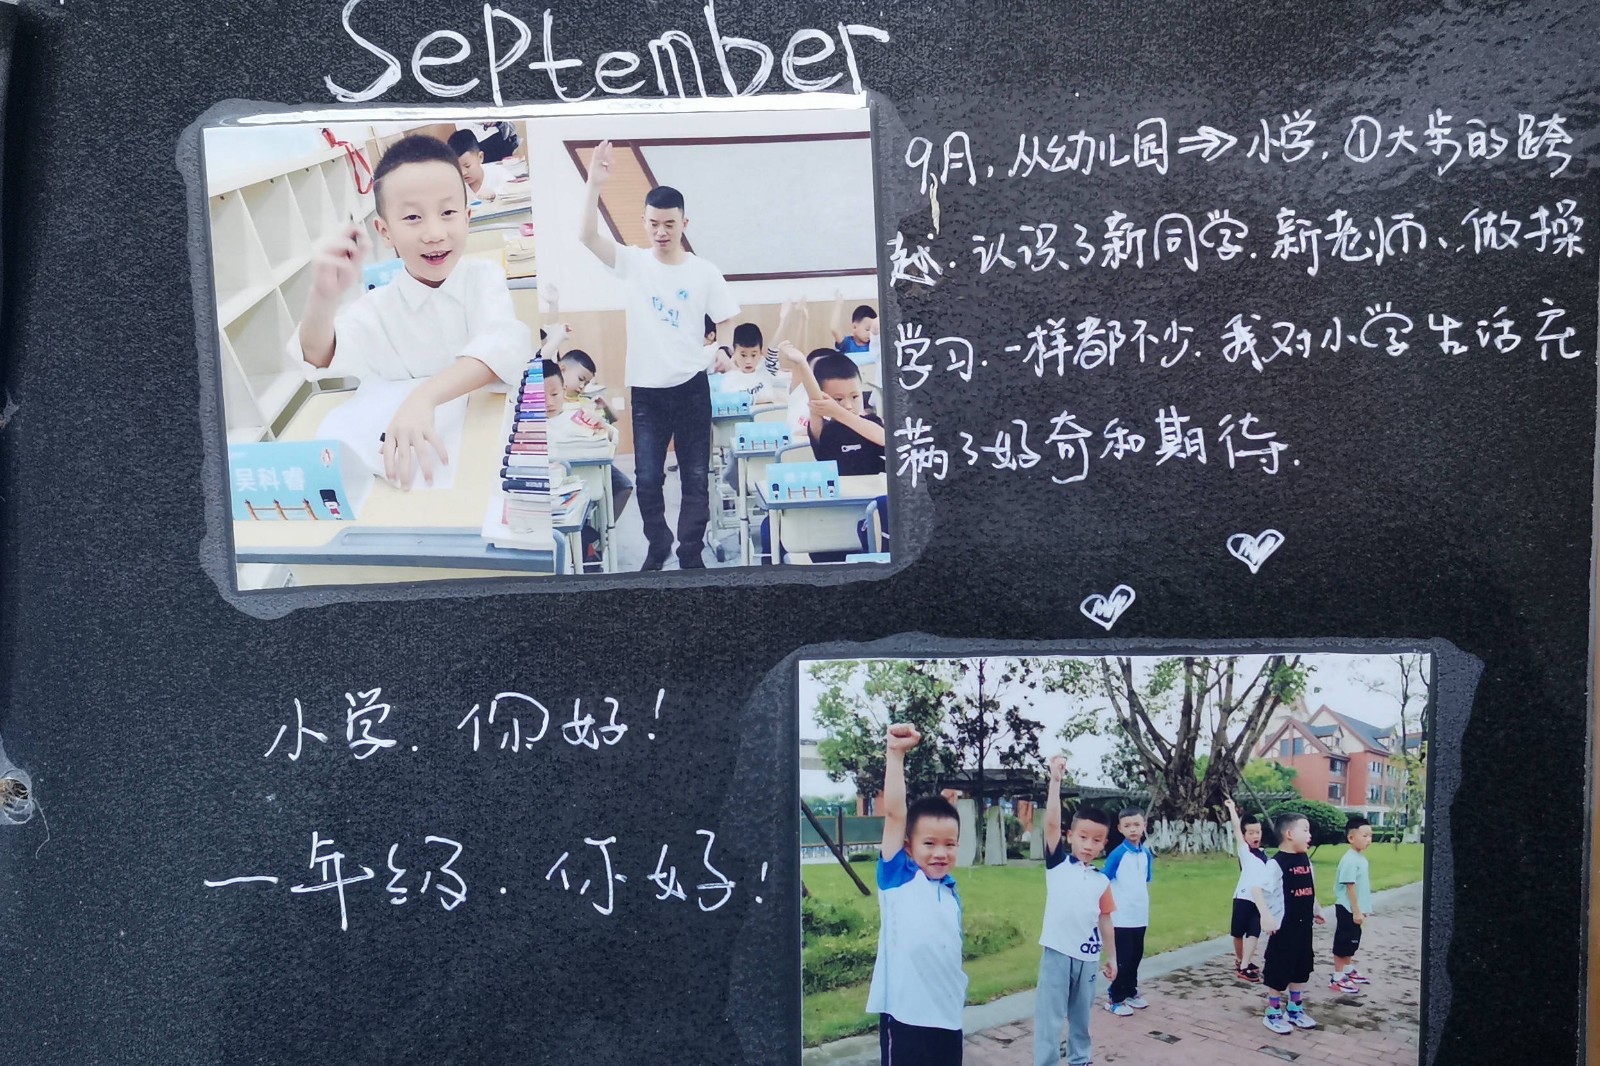 September
9月,从幼儿园⇒小学,①大步的跨
越.认识了新同学.新老师、做操
学习.一样都不少.我对小学生活充
满了好奇和期待.
吴科睿
小学.你好!
一年级.你好!
HOLA
AMOR
adidas